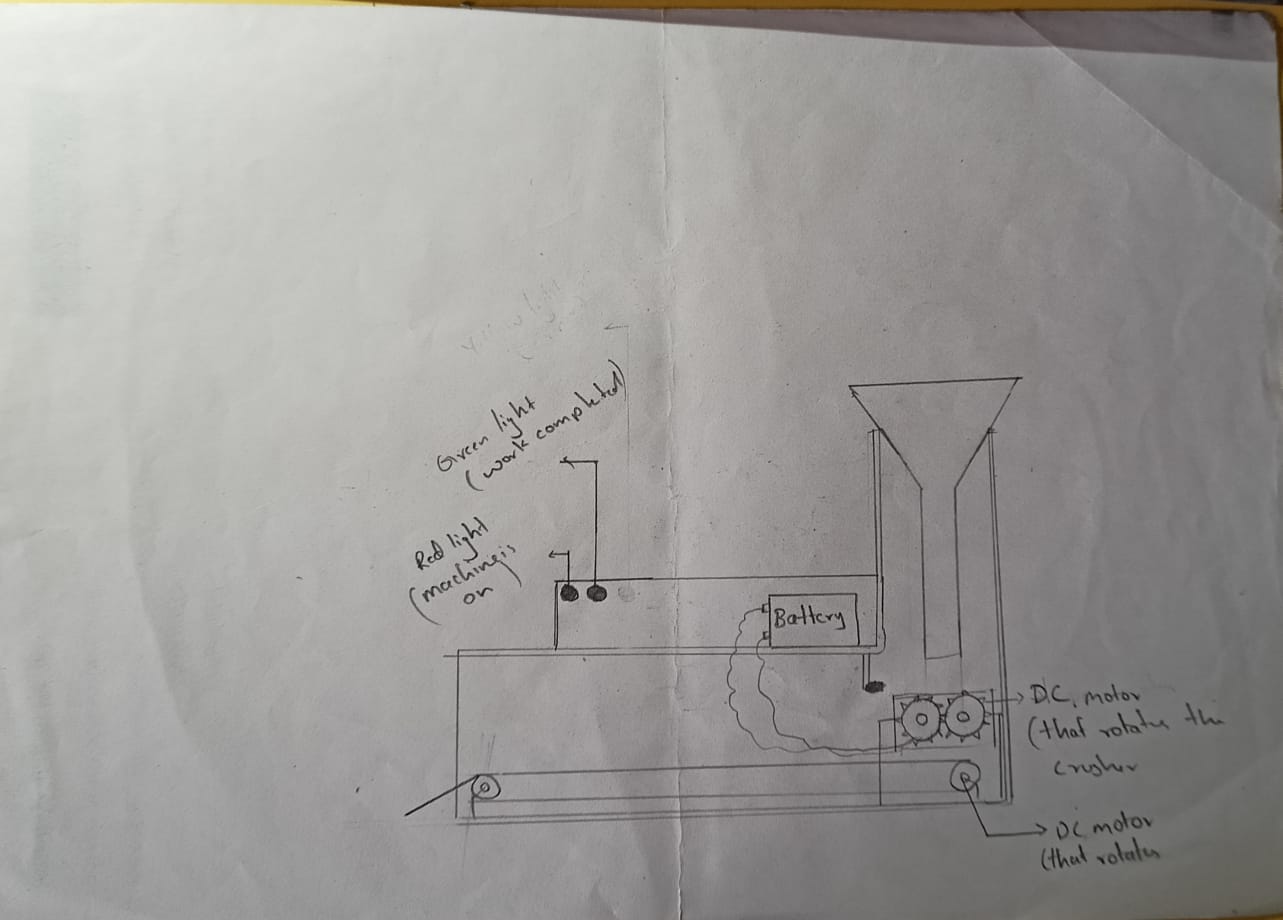 light
Green light
(work completed)
Red light
(machine is
on)
Battery
D.C. motor
(that rotates the
crusher
DC motor
(that rotates